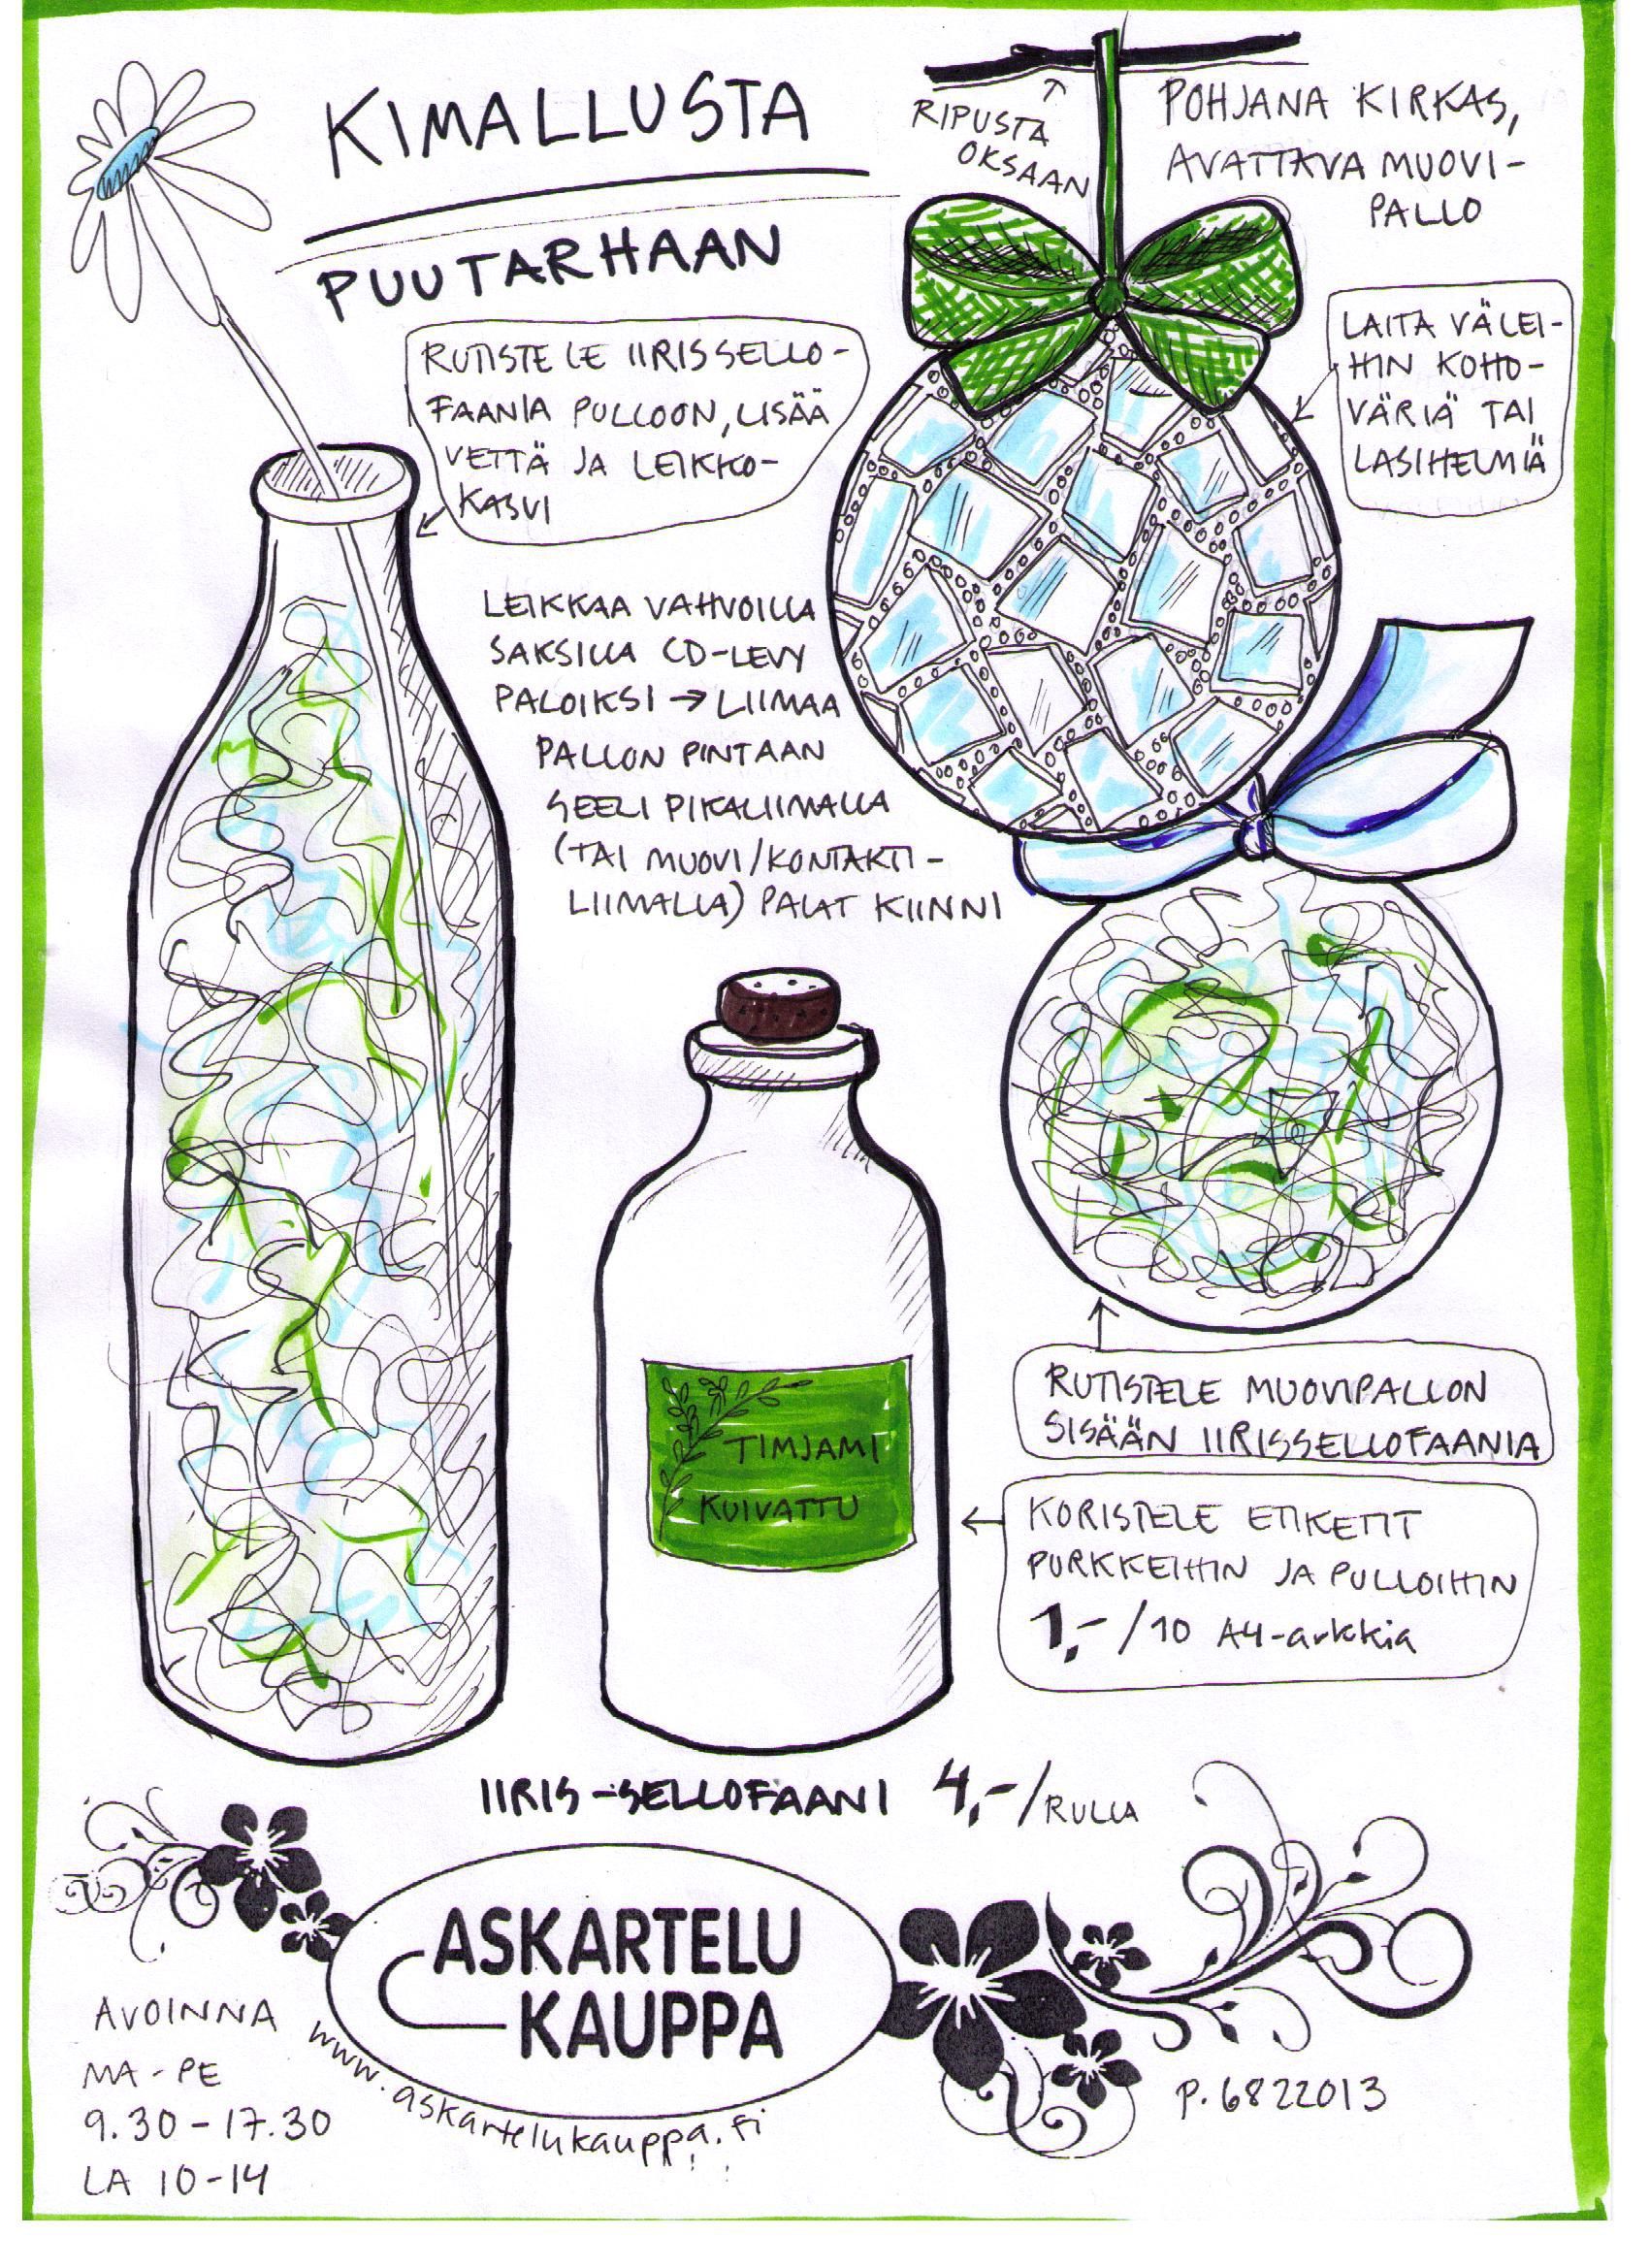 KIMALLUSTA
PUUTARHAAN
RIPUSTA
OKSAAN
POHJANA KIRKAS,
AVATTAVA MUOVI-
PALLO
RUTISTELE IIRISSELLO-
FAANIA PULLOON, LISÄÄ
VETTÄ JA LEIKKO-
KASVI
LAITA VÄLEI-
HIN KOHO-
VÄRIÄ TAI
LASIHELMIÄ
LEIKKAA VAHVOILLA
SAKSILLA CD-LEVY
PALOIKSI → LIIMAA
PALLON PINTAAN
SEELI PIKALIIMALLA
(TAI MUOVI/KONTAKTI-
LIIMALLA) PALAT KIINNI
RUTISTELE MUOVIPALLON
SISÄÄN IIRISSELLOFAANIA
TIMJAMI
KUIVATTU
KORISTELE ETIKETIT
PURKKEIHIN JA PULLOIHIN
1,-/10 A4-arkkia
IIRIS-SELLOFAANI 4,-/RULLA
ASKARTELU
KAUPPA
www.askartelukauppa.fi
AVOINNA
MA-PE
9.30-17.30
LA 10-14
P. 6822013